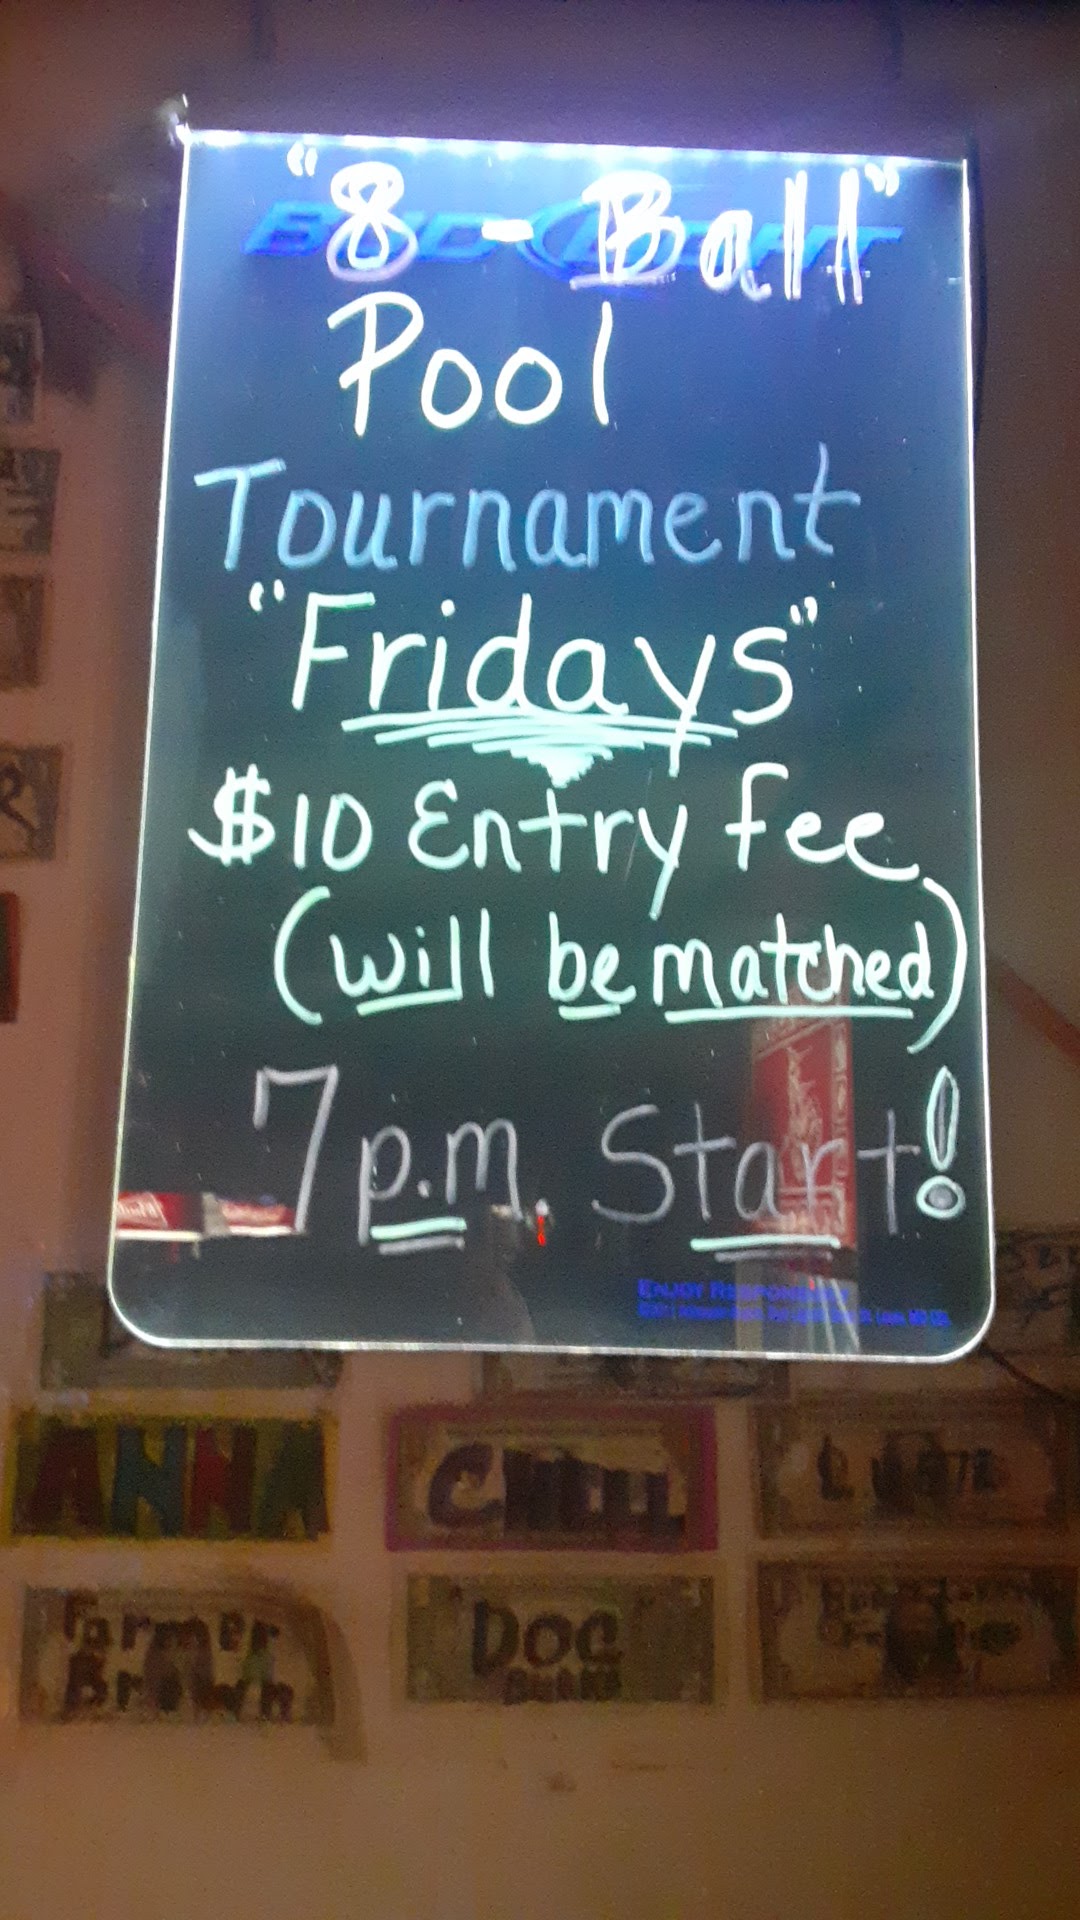 "8 - Ball"
BUD LIGHT
Pool
Tournament
"Fridays"
$10 Entry fee
(will be matched)
7 p.m. Start!
ENJOY RESPONSIBLY
ANNA
Farmer
Brown
DOC